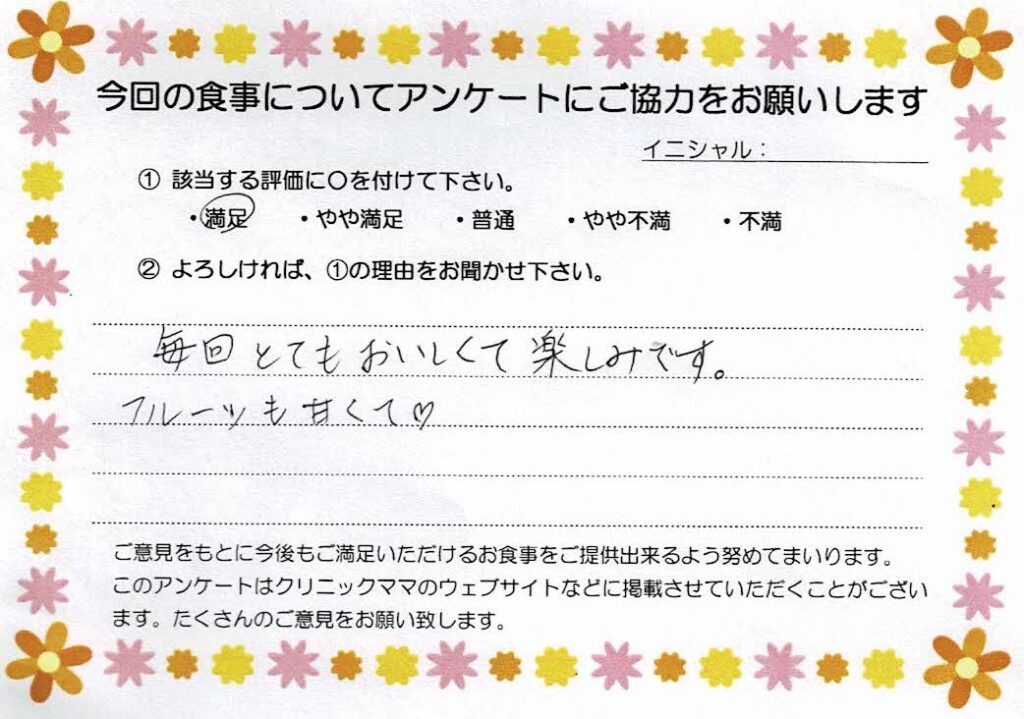 今回の食事についてアンケートにご協力をお願いします
イニシャル：
① 該当する評価に〇を付けて下さい。
・満足 ・やや満足 ・普通 ・やや不満 ・不満
② よろしければ、①の理由をお聞かせ下さい。
毎回とてもおいしくて楽しみです。
フルーツも甘くて♡
ご意見をもとに今後もご満足いただけるお食事をご提供出来るよう努めてまいります。
このアンケートはクリニックママのウェブサイトなどに掲載させていただくことがござい
ます。たくさんのご意見をお願い致します。